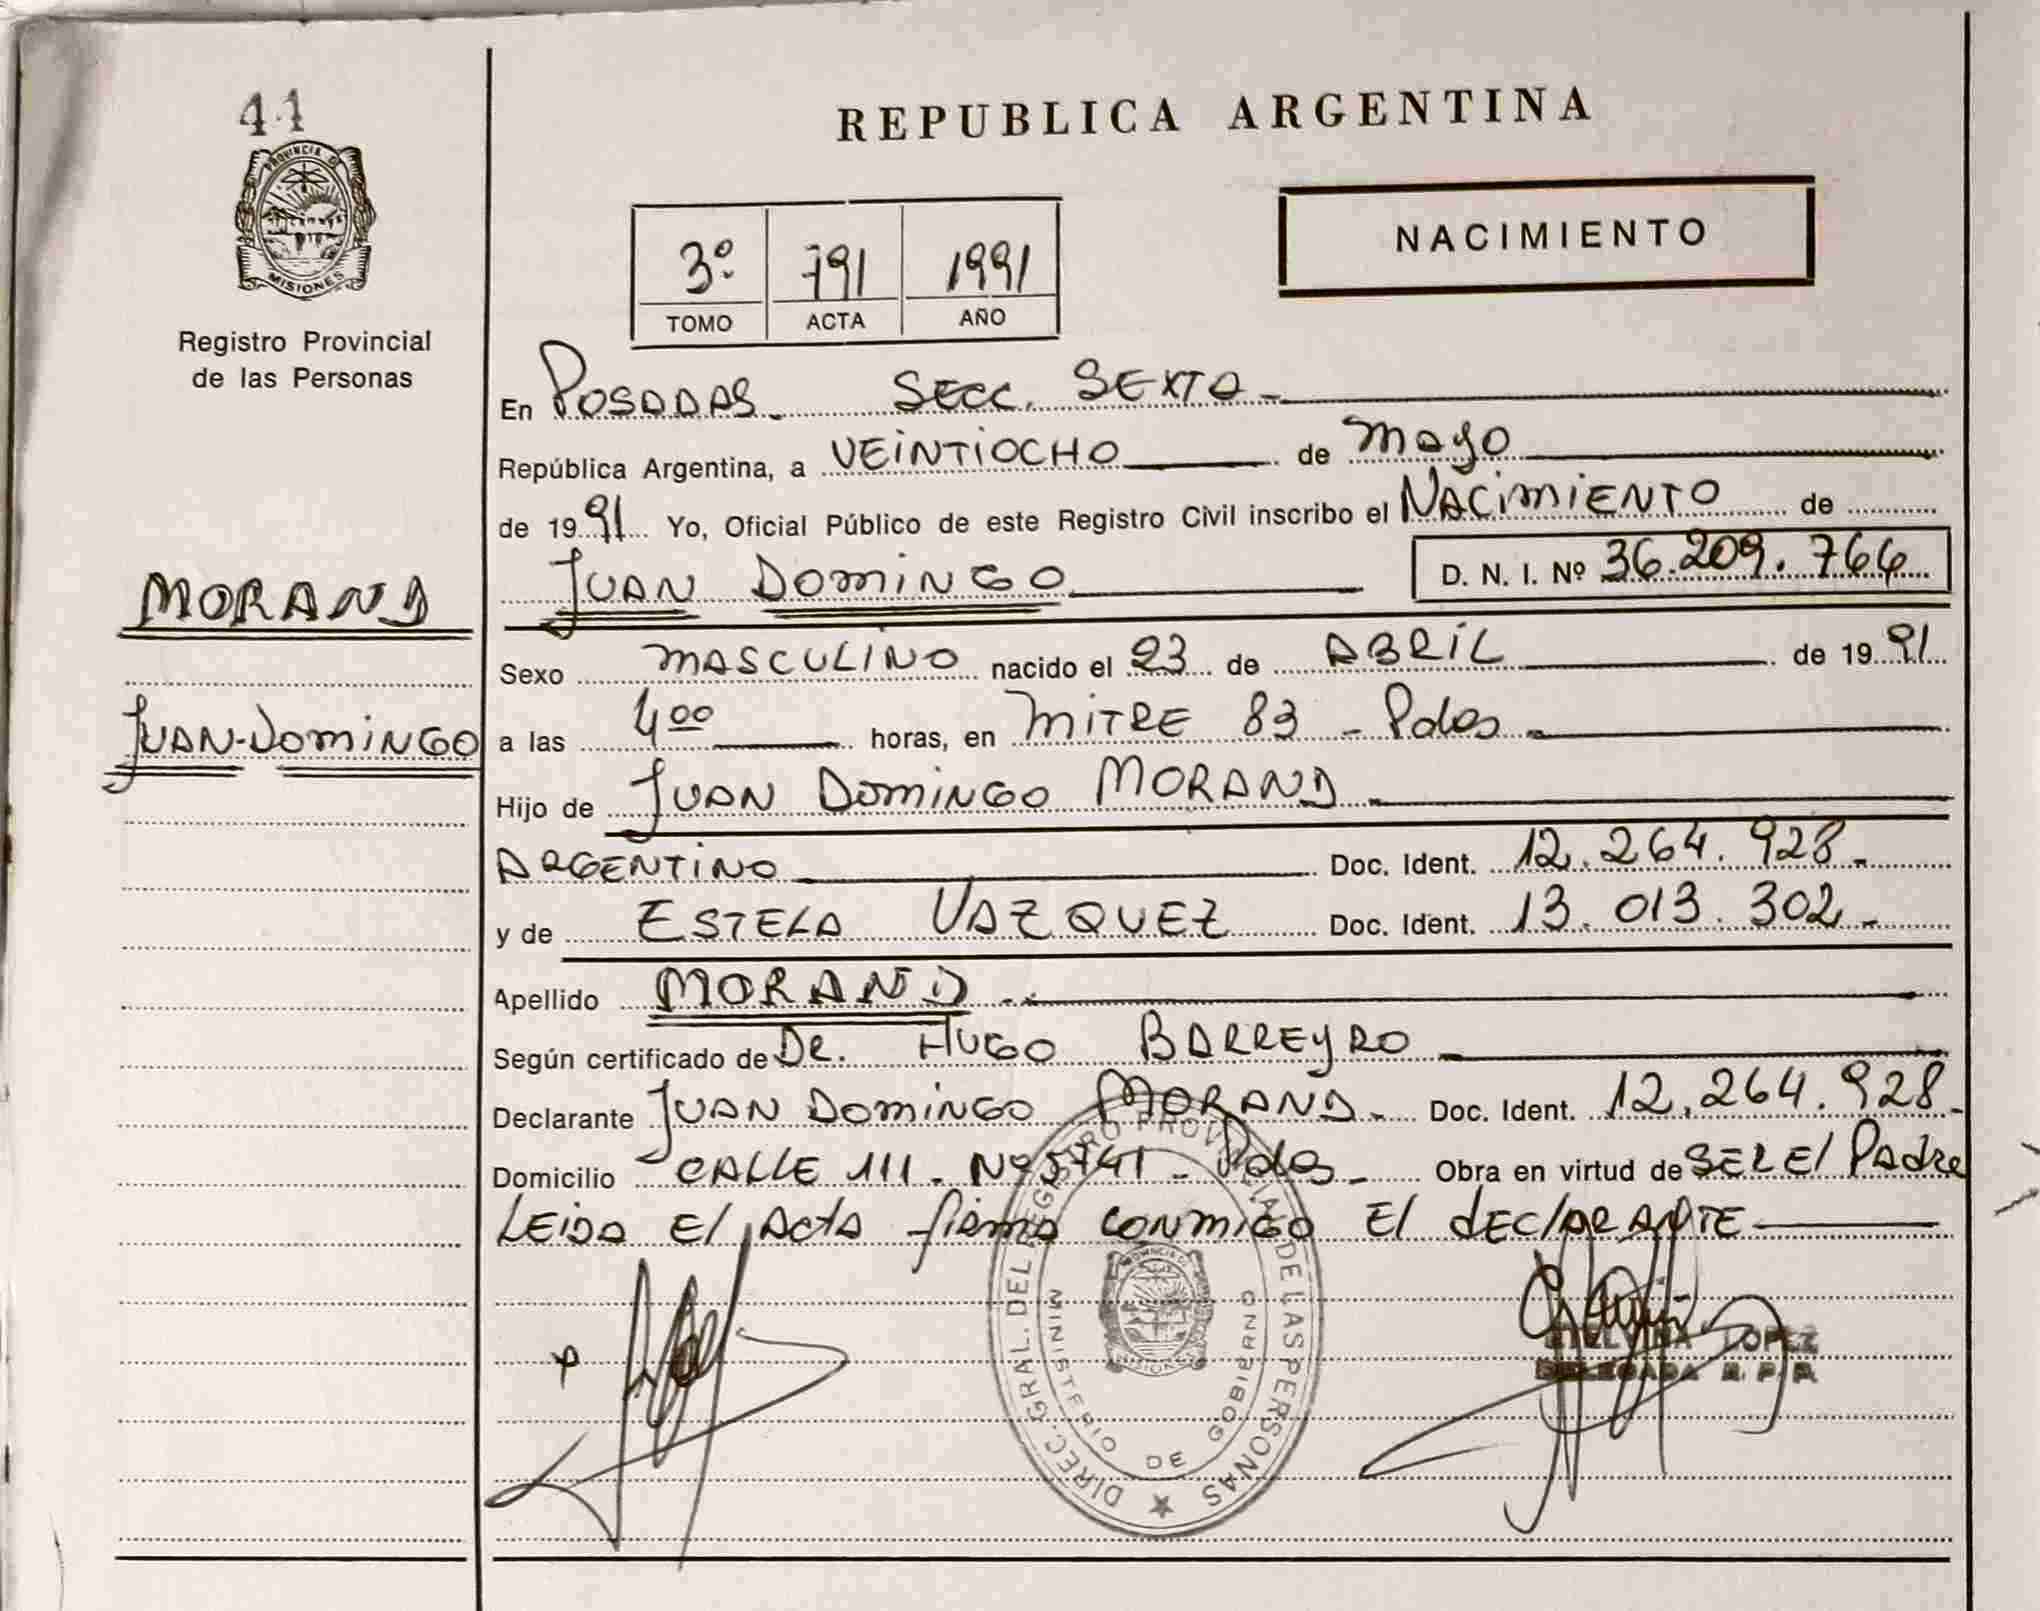 41
PROVINCIA D
MISIONES
Registro Provincial
de las Personas
MORAND
JUAN-DOMINGO
REPUBLICA ARGENTINA
3º 791 1991
TOMO ACTA AÑO
NACIMIENTO
En POSADAS. SECC. SEXTA
República Argentina, a VEINTIOCHO de Mayo
de 1991 Yo, Oficial Público de este Registro Civil inscribo el NACIMIENTO de
JUAN DOMINGO D. N. I. Nº 36.209.766
Sexo MASCULINO nacido el 23 de ABRIL de 1991
a las 4 00 horas, en MITRE 83 - Pdas
Hijo de JUAN DOMINGO MORAND
ARGENTINO Doc. Ident. 12.264.928.
y de ESTELA VAZQUEZ Doc. Ident. 13.013.302.
Apellido MORAND
Según certificado de DR. HUGO BARREYRO
Declarante JUAN DOMINGO MORAND. Doc. Ident. 12.264.928.
Domicilio CALLE 111. Nº 5741 - Pdas Obra en virtud de SER El Padre
LEIDA El Acta firma conmigo El dEClARANTE
DIREC. GRAL. DEL REGISTRO PROVINCIAL DE LAS PERSONAS
MINISTERIO DE GOBIERNO
LOPEZ
DELEGADA R. P. P.